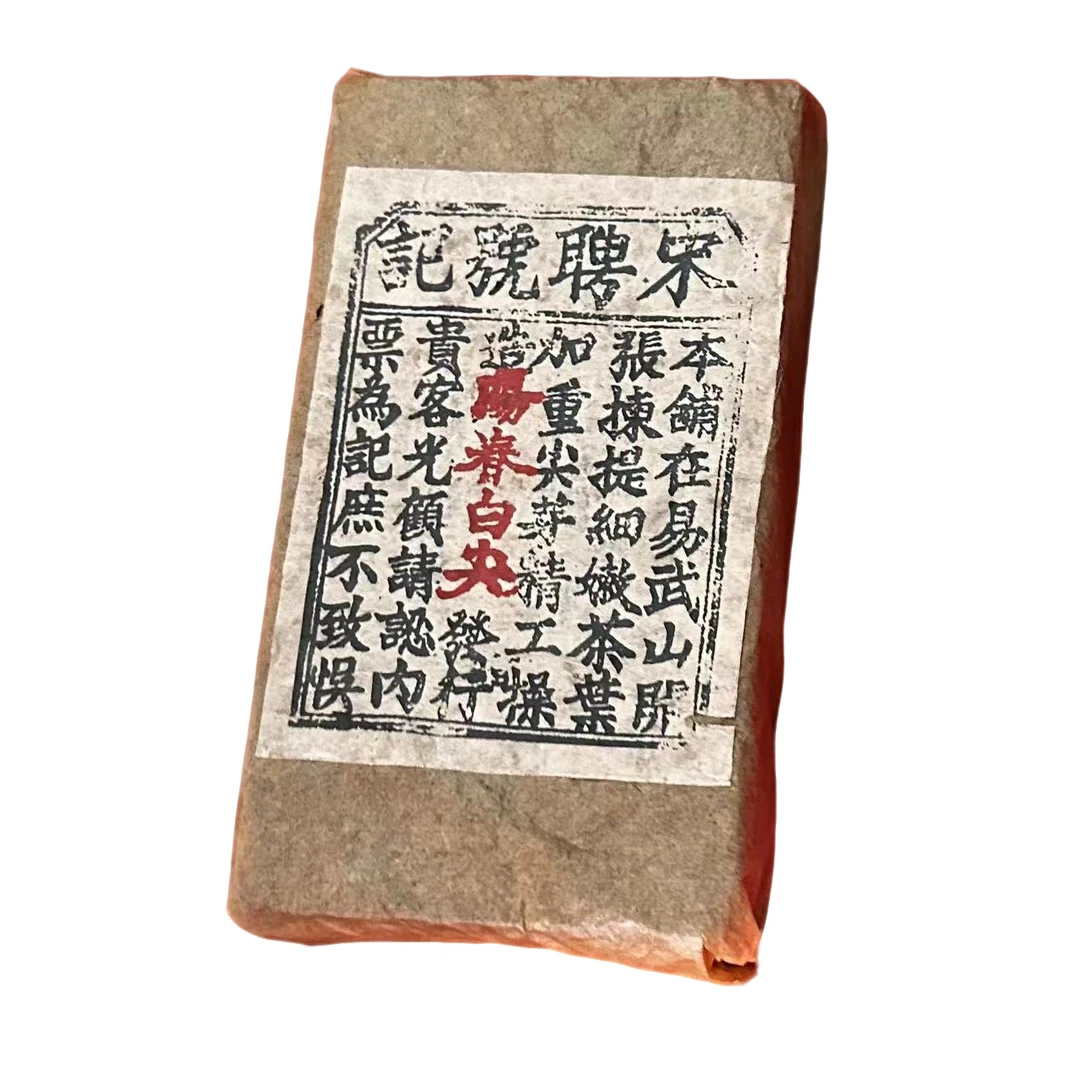 宋聘號記
本舖在易武山開
張揀提細嫩茶葉
加重尖芽精工操
造陽春白尖發行
貴客光顧請認內
票為記庶不致悞